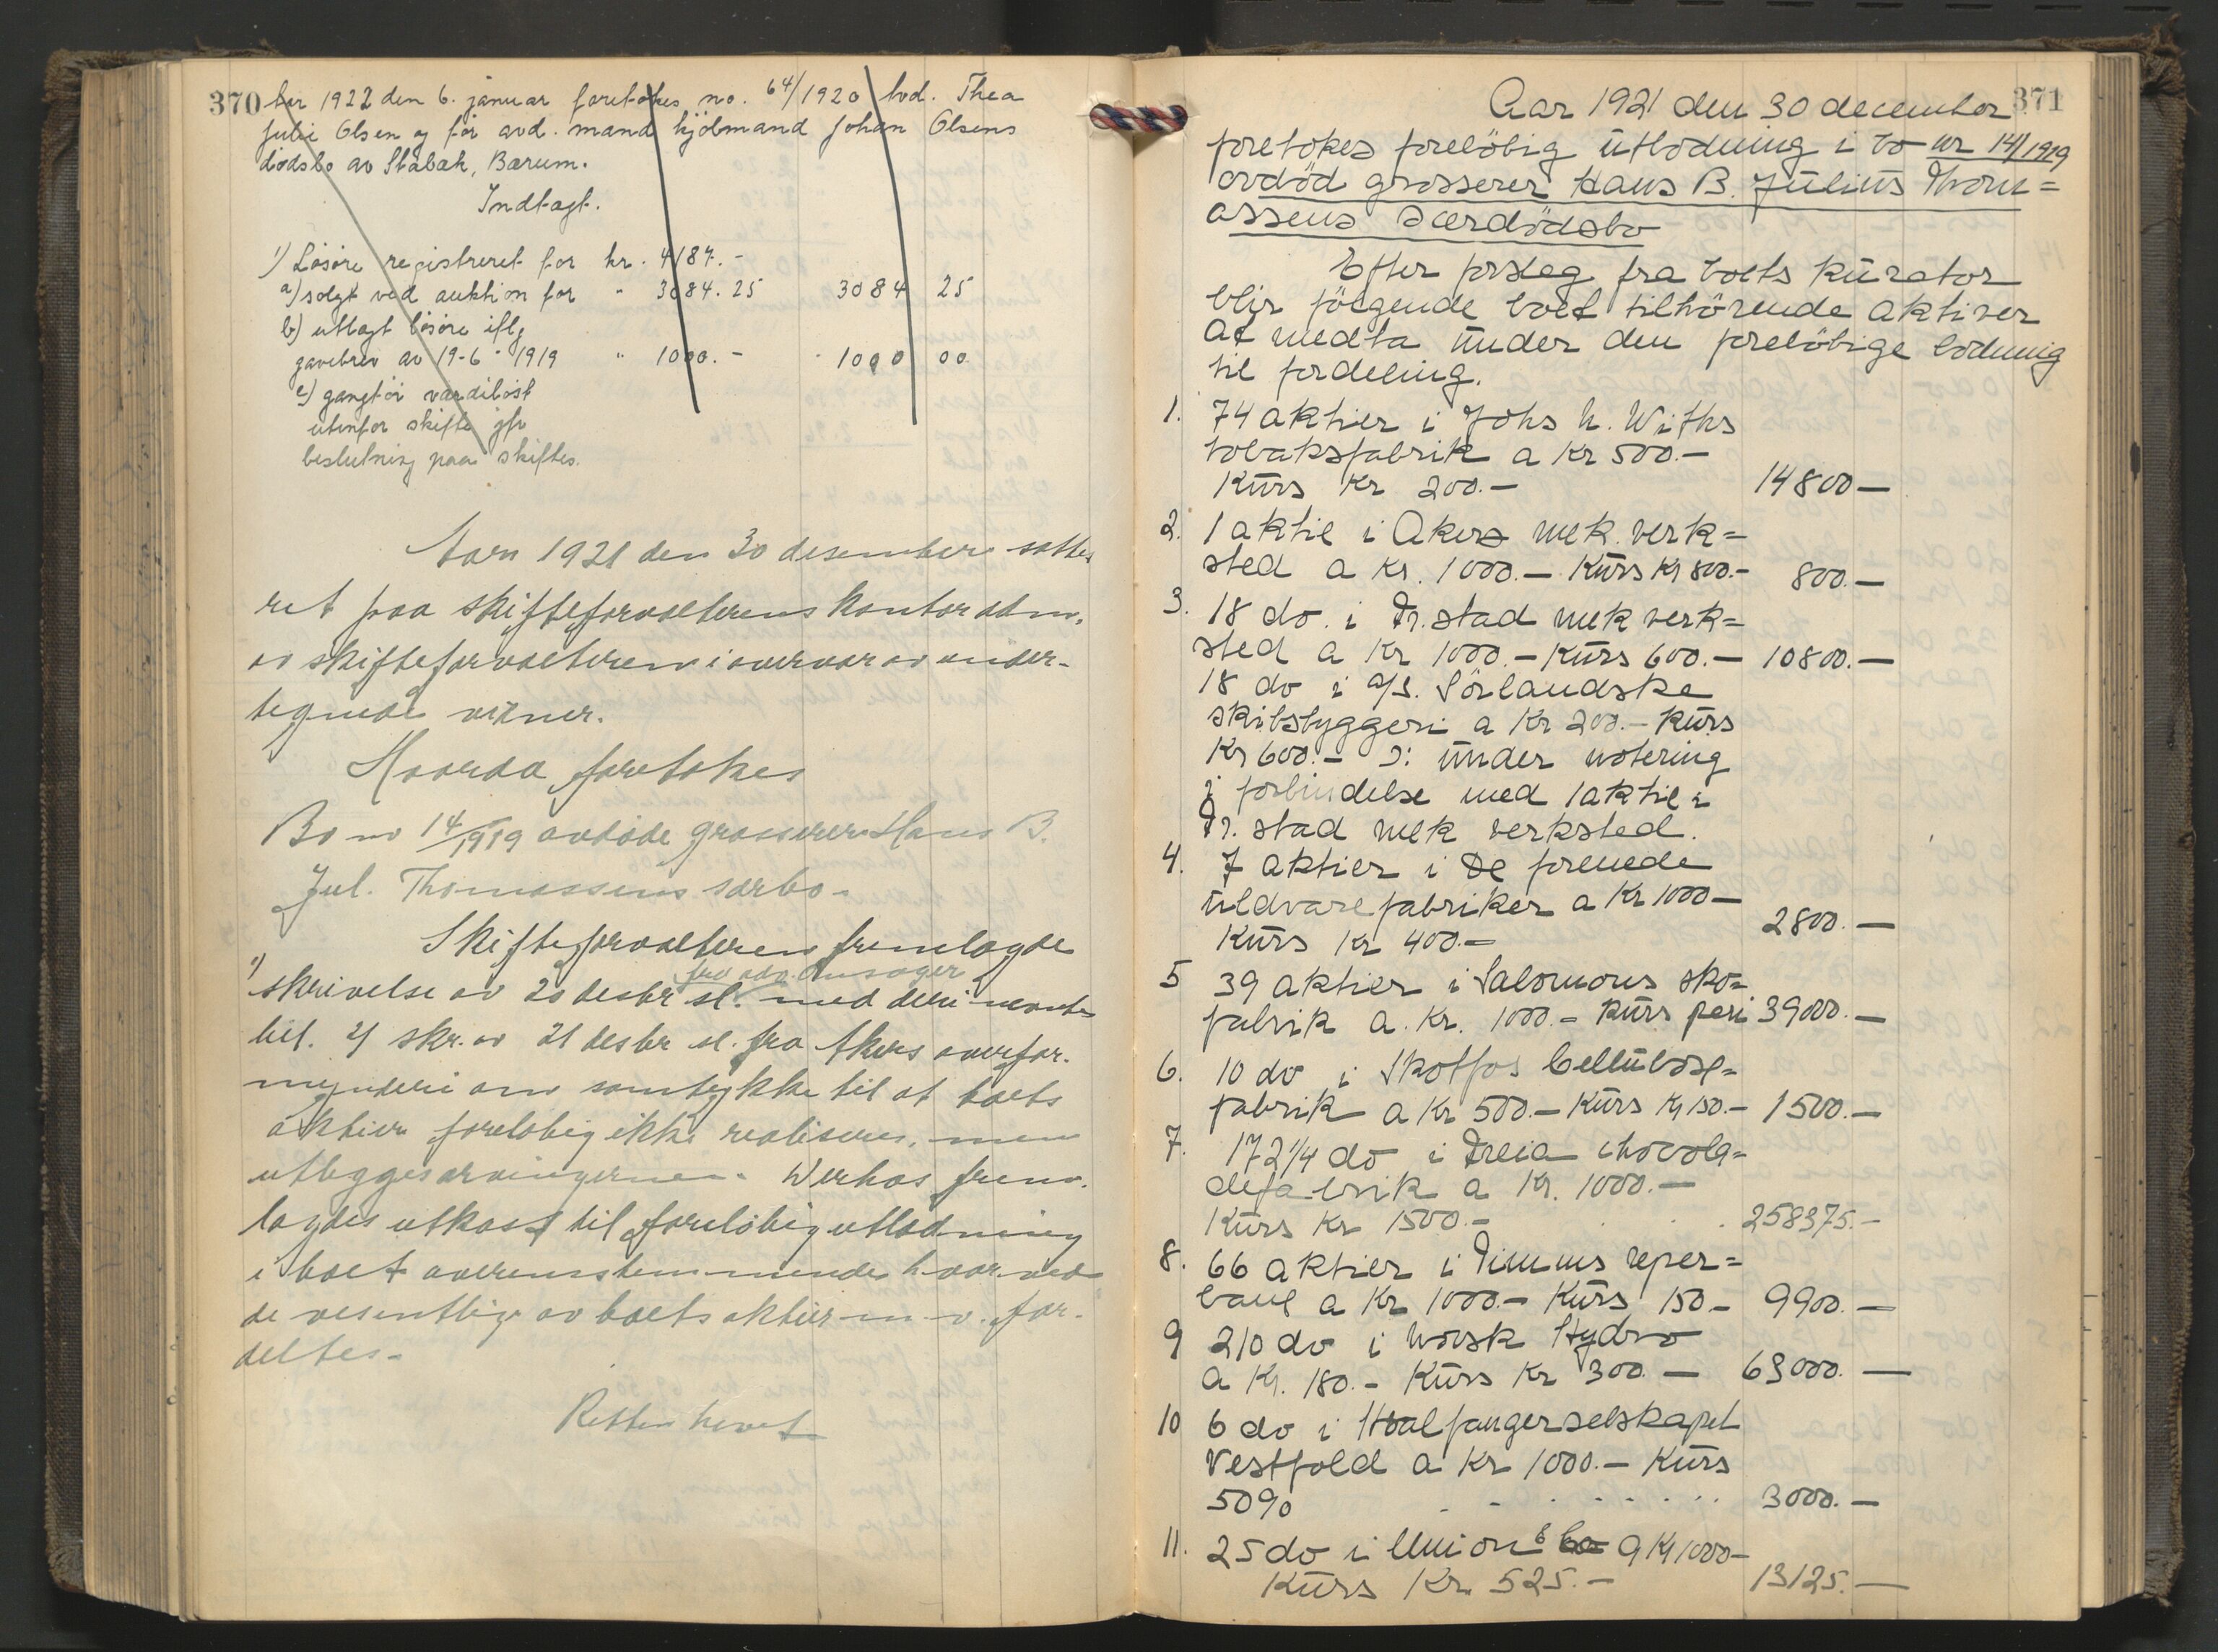 370
Aar 1922 den 6. januar foretokes no. 64/1920 hvd. Thea
Julie Olsen og før avd. mand hjólmand Johan Olsens
dødsbo av Stabæk, Bærum.
Indtægt.
1) Løsøre registreret for kr. 4187.-
a) solgt ved auktion for " 3084.25 3084 25
b) utlagt løsøre iflg
gavebrev av 19-6-1919 " 1000.- 1000 00
c) gangtöi værdiløst
utenfor skifte jfr
beslutning paa skiftes.
Aar 1921 den 30 desember sattes
ret paa skifteforvalterens kontor adm.
av skifteforvalteren i overvær av under-
tegnede vidner.
Hvorda foretokes
Bo no 14/1919 avdøde grosserer Hans B.
Jul. Thomassens særbo.
Skifteforvalteren fremlagde
fra adv. Ansager
1) skrivelse av 20 desbr sl. med deri nævnte
bil. 2) skr. av 21 desbr sl. fra Akers overfor-
mynderi om samtykke til at boets
aktier foreløbig ikke realiseres, men
utlegges arvingerne. Derhos frem-
lagdes utkast til foreløbig utlodning
i boet overensstemmende hvormed
de vesentlige av boets aktier m. v. for-
deltes.
Retten hevet
371
Aar 1921 den 30 december
foretokes forelöbig ütlodning i bo nr 14/1919
avdöd grosserer Hans B. Jülius Thom=
assens særdödsbo
Efter forslag fra boets kürator
blir fölgende boet tilhörende aktiver
at medta ünder den forelöbige lodning
til fordeling.
1. 74 aktier i Johs H. Withs
tobaksfabrik a Kr 500.-
Kürs Kr 200.- 14800-
2. 1 aktie i Akers mek. verk=
sted a Kr. 1000.- Kürs Kr 800.- 800.-
3. 18 do. i Fr.stad mek verk=
sted a Kr 1000.- Kürs 600.- 10800.-
18 do i a/s. Sörlandske
skibsbyggeri a Kr 200.- Kürs
Kr 600.- ɔ: ünder notering
i forbindelse med 1 aktie i
Fr. stad mek verksted.
4. 7 aktier i De forenede
üldvarefabriker a Kr 1000-
Kürs Kr 400.- 2800.-
5 39 aktier i Salomons sko=
fabrik a. Kr. 1000.- Kürs pari 39000.-
6. 10 do i Skotfos Cellülose=
fabrik a Kr 500.- Kürs Kr 150.- 1500.-
7. 172 1/4 do i Freia chocola=
defabrik a Kr. 1000.-
Kürs Kr 1500.- 258375.-
8. 66 aktier i Timms reper=
bane a Kr 1000.- Kürs 150.- 9900.-
9 210 do i Norsk Hydro
a Kr. 180.- Kürs Kr 300.- 63000.-
10 6 do i Hvalfangerselskapet
Vestfold a Kr 1000.- Kürs
50% 3000.-
11. 25 do i Union a Kr 1000-
Kürs Kr. 525.- 13125.-